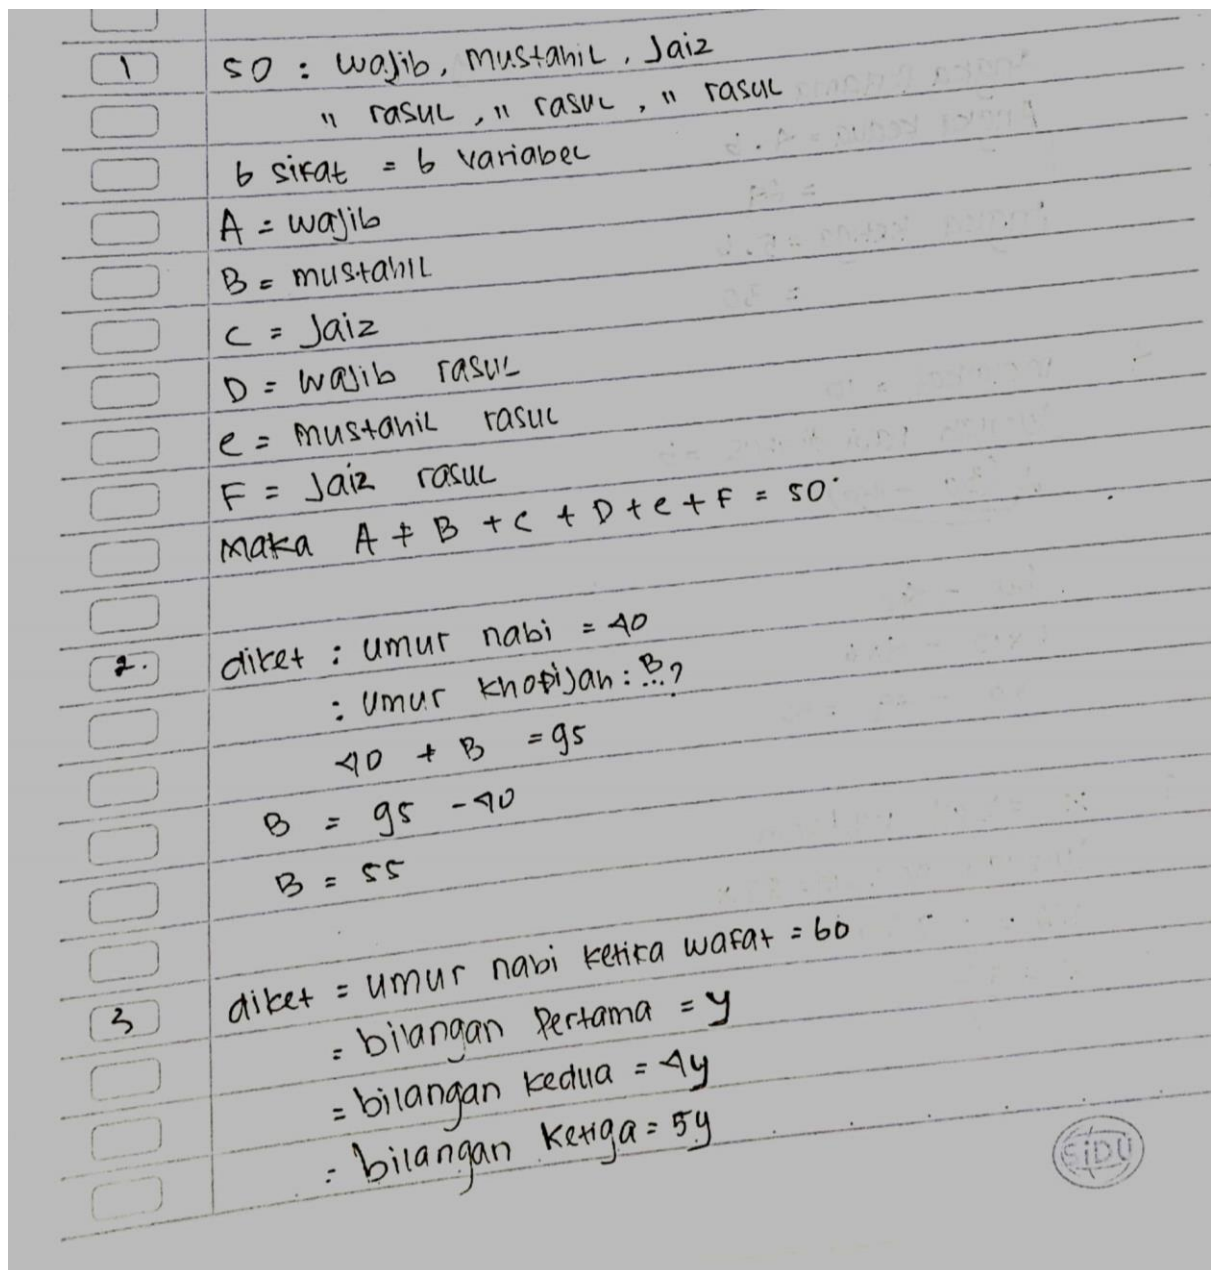 1 50 : wajib, mustahil, Jaiz
" rasul, " rasul, " rasul
6 sifat = 6 variabel
A = wajib
B = mustahil
C = Jaiz
D = wajib rasul
e = mustahil rasul
F = Jaiz rasul
maka A + B + C + D + e + F = 50
2. diket : umur nabi = 40
: umur khodijah : B..?
40 + B = 95
B = 95 - 40
B = 55
3 diket = umur nabi ketika wafat = 60
= bilangan Pertama = y
= bilangan kedua = 4y
= bilangan ketiga = 5y
SiDU